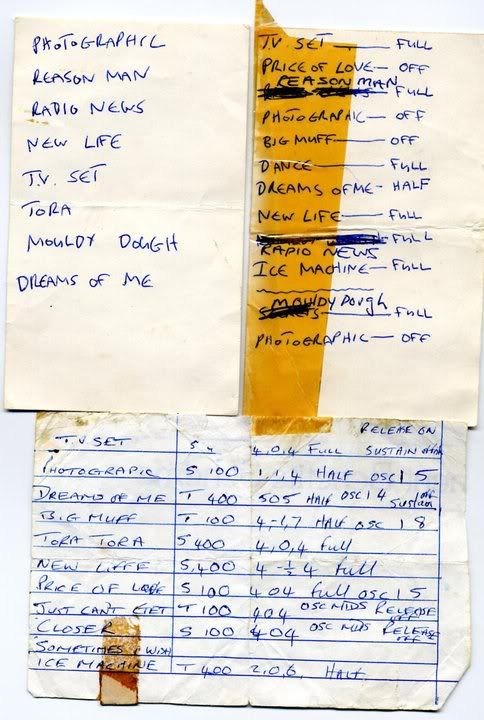 PHOTOGRAPHIC
REASON MAN
RADIO NEWS
NEW LIFE
T.V. SET
TORA
MOULDY DOUGH
DREAMS OF ME
T.V. SET — FULL
PRICE OF LOVE — OFF
REASON MAN
FULL
PHOTOGRAPHIC — OFF
BIG MUFF — OFF
DANCE — FULL
DREAMS OF ME - HALF
NEW LIFE — FULL
FULL
RADIO NEWS
ICE MACHINE — FULL
MOULDY DOUGH
FULL
PHOTOGRAPHIC — OFF
RELEASE ON
T.V SET S 4,0,4 FULL SUSTAIN
PHOTOGRAPIC S 100 1,1,4 HALF OSC 1 5
DREAMS OF ME T 400 505 HALF OSC 1 4 SUSTAIN OFF
BIG MUFF T 100 4,-1,7 HALF OSC 1 8
TORA TORA S 400 4,0,4 full
NEW LIFE S,400 4 -½ 4 full
PRICE OF LOVE S 100 404 full OSC 1 5
JUST CANT GET T 100 404 OSC MIDS RELEASE OFF
CLOSER S 100 404 OSC MIDS RELEASE OFF
SOMETIMES I WISH
ICE MACHINE T 400 2,0,6, HALF